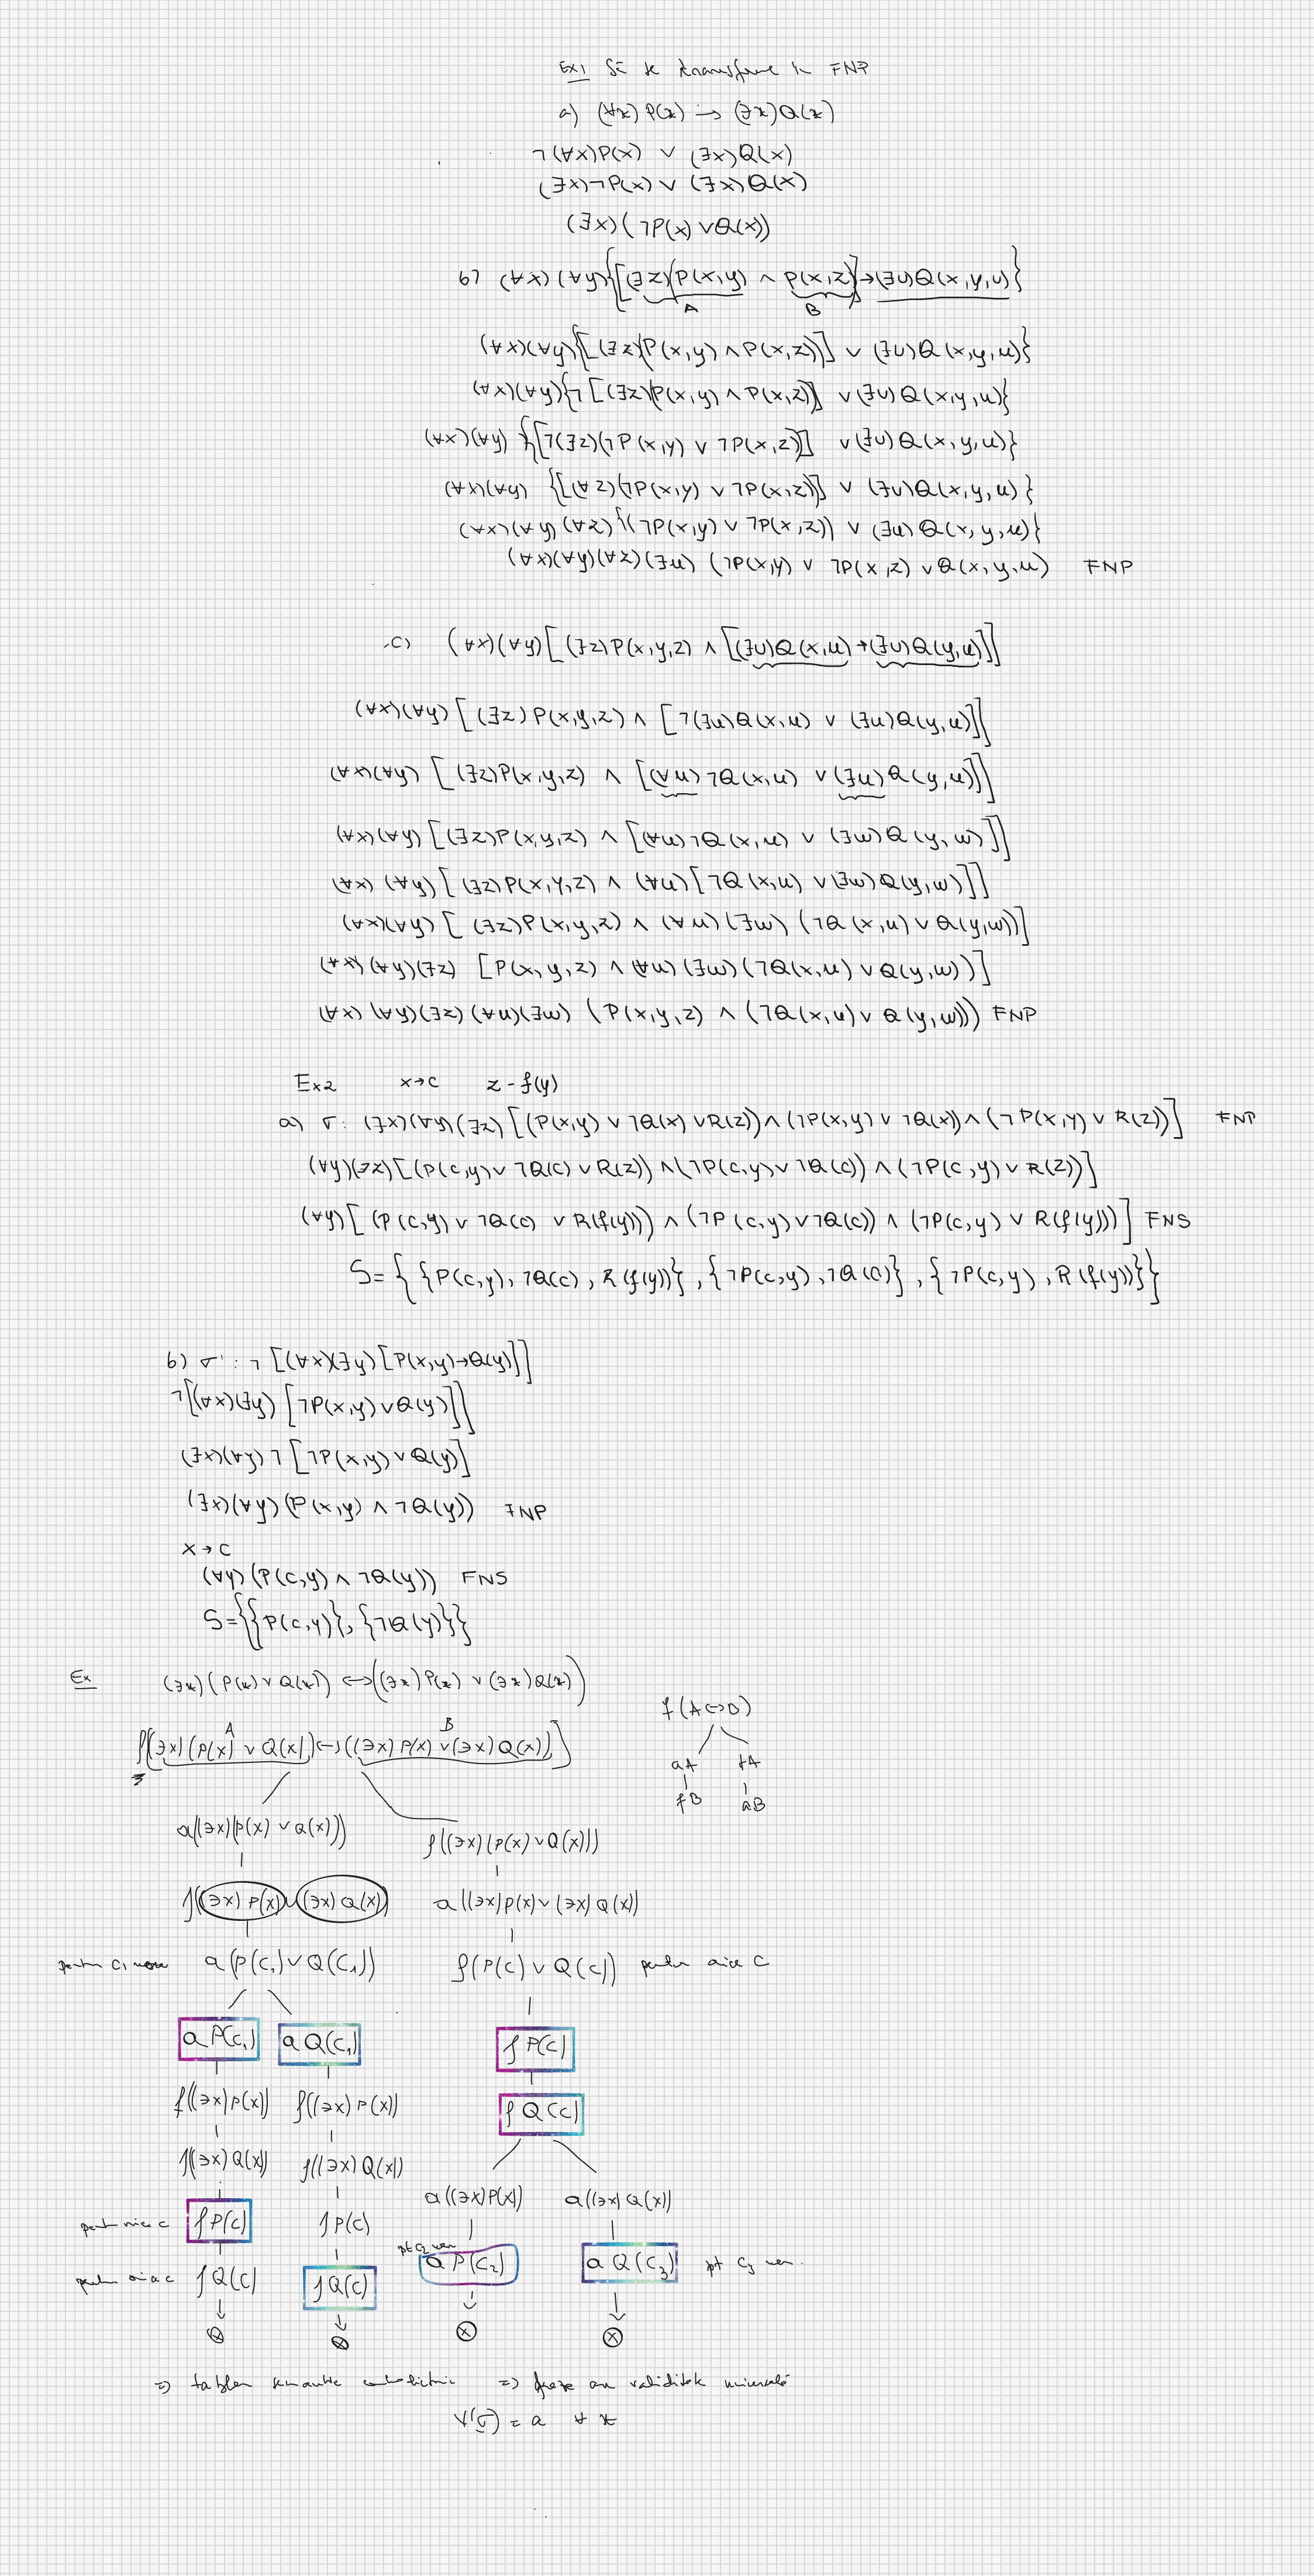 Ex1 Să se transforme în FNP
a) (∀x)P(x) → (∃x)Q(x)
¬(∀x)P(x) ∨ (∃x)Q(x)
(∃x)¬P(x) ∨ (∃x)Q(x)
(∃x)(¬P(x) ∨Q(x))
b) (∀x)(∀y){[(∃z)(P(x,y) ∧ P(x,z)]→(∃u)Q(x,y,u)}
A B
(∀x)(∀y){[(∃z)(P(x,y) ∧P(x,z))] ∨ (∃u)Q(x,y,u)}
(∀x)(∀y){¬[(∃z)(P(x,y) ∧ P(x,z))] ∨(∃u)Q(x,y,u)}
(∀x)(∀y) {[¬(∃z)(¬P(x,y) ∨ ¬P(x,z))] ∨(∃u)Q(x,y,u)}
(∀x)(∀y) {[(∀z)(¬P(x,y) ∨ ¬P(x,z))] ∨ (∃u)Q(x,y,u)}
(∀x)(∀y)(∀z){(¬P(x,y) ∨ ¬P(x,z)) ∨ (∃u)Q(x,y,u)}
(∀x)(∀y)(∀z)(∃u) (¬P(x,y) ∨ ¬P(x,z) ∨Q(x,y,u)) FNP
c) (∀x)(∀y)[(∃z)P(x,y,z) ∧ [(∃u)Q(x,u)→(∃u)Q(y,u)]]
(∀x)(∀y)[(∃z)P(x,y,z) ∧ [¬(∃u)Q(x,u) ∨ (∃u)Q(y,u)]]
(∀x)(∀y) [(∃z)P(x,y,z) ∧ [(∀u)¬Q(x,u) ∨(∃u)Q(y,u)]]
(∀x)(∀y)[(∃z)P(x,y,z) ∧ [(∀u)¬Q(x,u) ∨ (∃w)Q(y,w)]]
(∀x)(∀y)[(∃z)P(x,y,z) ∧ (∀u)[¬Q(x,u) ∨(∃w)Q(y,w)]]
(∀x)(∀y)[(∃z)P(x,y,z) ∧ (∀u)(∃w)(¬Q(x,u) ∨ Q(y,w))]
(∀x)(∀y)(∃z) [P(x,y,z) ∧ (∀u)(∃w)(¬Q(x,u) ∨ Q(y,w))]
(∀x)(∀y)(∃z)(∀u)(∃w) (P(x,y,z) ∧ (¬Q(x,u) ∨ Q(y,w))) FNP
Ex2 x→c z-f(y)
a) σ: (∃x)(∀y)(∃z)[(P(x,y) ∨ ¬Q(x) ∨R(z))∧(¬P(x,y) ∨ ¬Q(x))∧(¬P(x,y) ∨ R(z))] FNP
(∀y)(∃z)[(P(c,y) ∨ ¬Q(c) ∨ R(z)) ∧(¬P(c,y) ∨ ¬Q(c)) ∧ (¬P(c,y) ∨ R(z))]
(∀y)[(P(c,y) ∨ ¬Q(c) ∨ R(f(y))) ∧ (¬P(c,y) ∨¬Q(c)) ∧ (¬P(c,y) ∨ R(f(y)))] FNS
S={{P(c,y), ¬Q(c), R(f(y))}, {¬P(c,y), ¬Q(c)}, {¬P(c,y), R(f(y))}}
b) σ: ¬[(∀x)(∃y)[P(x,y)→Q(y)]]
¬[(∀x)(∃y)[¬P(x,y)∨Q(y)]]
(∃x)(∀y)¬[¬P(x,y) ∨ Q(y)]
(∃x)(∀y)(P(x,y) ∧ ¬Q(y)) FNP
x→c
(∀y)(P(c,y) ∧ ¬Q(y)) FNS
S={{P(c,y)}, {¬Q(y)}}
Ex (∃x)(P(x) ∨ Q(x)) ↔((∃x)P(x) ∨(∃x)Q(x))
f(A↔B)
A B
f[(∃x)(P(x) ∨ Q(x))↔((∃x)P(x) ∨(∃x)Q(x))]
aA fA
fB aB
a((∃x)(P(x) ∨Q(x))) f((∃x)(P(x)∨Q(x)))
f((∃x)P(x)∨(∃x)Q(x)) a((∃x)P(x)∨(∃x)Q(x))
pentru C₁ a(P(C₁)∨Q(C₁)) f(P(C)∨Q(C)) pentru orice C
aP(C₁) aQ(C₁) fP(C)
f((∃x)P(x)) f((∃x)P(x)) fQ(C)
f((∃x)Q(x)) f((∃x)Q(x)) a((∃x)P(x)) a((∃x)Q(x))
pentru orice c fP(C) fP(C) pt C₂ aP(C₂) aQ(C₃) pt C₃
pentru orice c fQ(C) fQ(C)
⊗ ⊗ ⊗ ⊗
=> tablou semantic contradictoriu => universală
V(σ) = a ∀